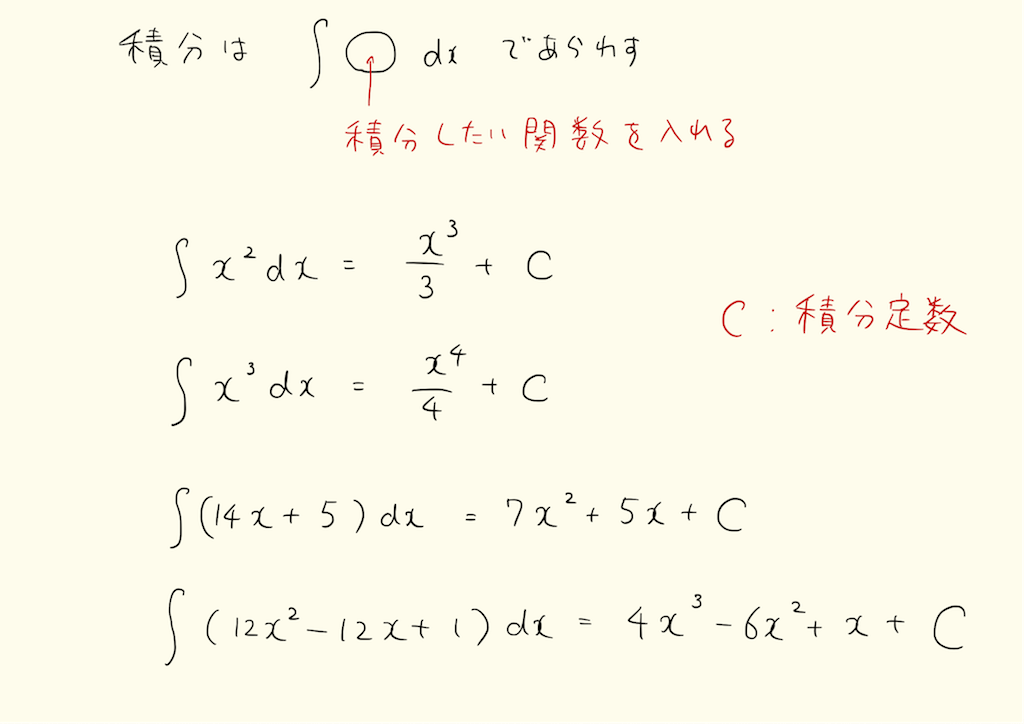 積分は ∫ ◯ dx であらわす
積分したい関数を入れる
∫ x² dx = x³/3 + C
C : 積分定数
∫ x³ dx = x⁴/4 + C
∫ (14x + 5) dx = 7x² + 5x + C
∫ (12x² − 12x + 1) dx = 4x³ − 6x² + x + C